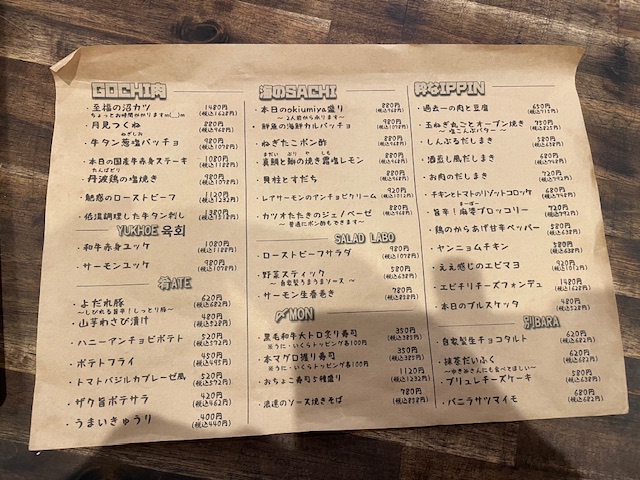 GOCHI肉
・至福の沼カツ 1480円
ちょっとお時間かかりますm(__)m (税込1628円)
・月見つくね 880円
(税込968円)
ねぎしお
・牛タン葱塩パッチョ 980円
(税込1078円)
・本日の国産牛赤身ステーキ 1080円
(税込1188円)
たんばどり
・丹波鶏の塩焼き 980円
(税込1078円)
・魅惑のローストビーフ 1120円
(税込1232円)
・低温調理した牛タン刺し
YUKHOE 육회
・和牛赤身ユッケ 1080円
(税込1188円)
・サーモンユッケ 980円
(税込1078円)
肴ATE
・よだれ豚 620円
～しびれる旨辛！しっとり豚～ (税込682円)
・山芋わさび漬け 480円
(税込528円)
・ハニーアンチョビポテト 520円
(税込572円)
・ポテトフライ 450円
(税込495円)
・トマトバジルカプレーゼ風 520円
(税込572円)
・ザク旨ポテサラ 420円
(税込462円)
・うまいきゅうり 400円
(税込440円)
海のSACHI
・本日のokiumiya盛り 880円
～2人前から承ります～ (税込968円)
・鮮魚の海鮮カルパッチョ 980円
(税込1078円)
・ねぎたこポン酢 880円
(税込968円)
・真鯛と鰤の焼き霜塩レモン 880円
(税込968円)
・貝柱とすだち 880円
(税込968円)
・レアサーモンのアンチョビクリーム 920円
(税込1012円)
・カツオたたきのジェノベーゼ 880円
～普通にポン酢もできます～ (税込968円)
SALAD LABO
・ローストビーフサラダ 980円
(税込1078円)
・野菜スティック 580円
～自家製うまうまソース～ (税込638円)
・サーモン生春巻き 780円
(税込858円)
〆MON
・黒毛和牛大トロ炙り寿司 350円
※うに・いくらトッピング各100円 (税込385円)
・本マグロ握り寿司 350円
※うに・いくらトッピング各100円 (税込385円)
・おちょこ寿司5種盛り 1120円
(税込1232円)
・浪速のソース焼きそば 780円
(税込858円)
粋なIPPIN
・過去一の肉と豆腐 650円
(税込715円)
・玉ねぎ丸ごとオーブン焼き 750円
～塩こんぶバター～ (税込825円)
・しんぷるだしまき 580円
(税込638円)
・酒蒸し風だしまき 680円
(税込748円)
・お肉のだしまき 720円
(税込792円)
・チキンとトマトのリゾットコロッケ 680円
(税込748円)
まーぼー
・旨辛！麻婆ブロッコリー 720円
(税込792円)
・鶏のからあげ甘辛ペッパー 580円
(税込638円)
・ヤンニョムチキン 580円
(税込638円)
・ええ感じのエビマヨ 920円
(税込1012円)
・エビチリチーズフォンデュ
・本日のブルスケッタ 480円
(税込528円)
別BARA
・自家製生チョコタルト 620円
(税込682円)
・抹茶だいふく 620円
～やきみさんにも食べてほしい～ (税込682円)
・ブリュレチーズケーキ 580円
(税込638円)
・バニラサツマイモ 680円